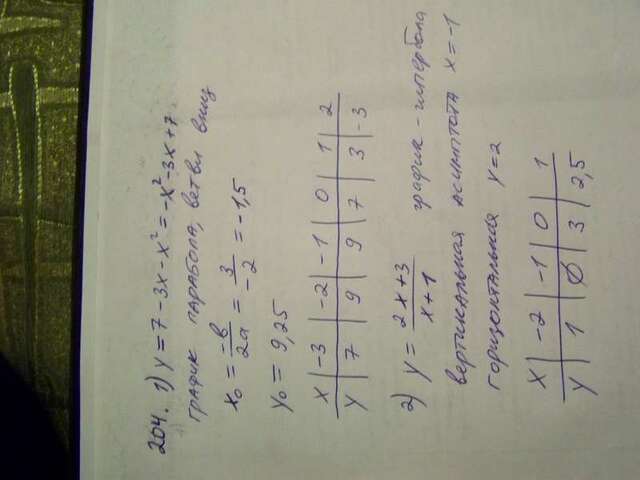 204. 1) y = 7 - 3x - x² = -x² - 3x + 7.
график парабола, ветви вниз
x₀ = -в/2а = 3/-2 = -1,5
y₀ = 9,25
x | -3 | -2 | -1 | 0 | 1 | 2
y | 7 | 9 | 9 | 7 | 3 | -3
2) y = 2x+3/x+1 график - гипербола
вертикальная асимптота x = -1
горизонтальная y = 2
x | -2 | -1 | 0 | 1
y | 1 | ∅ | 3 | 2,5